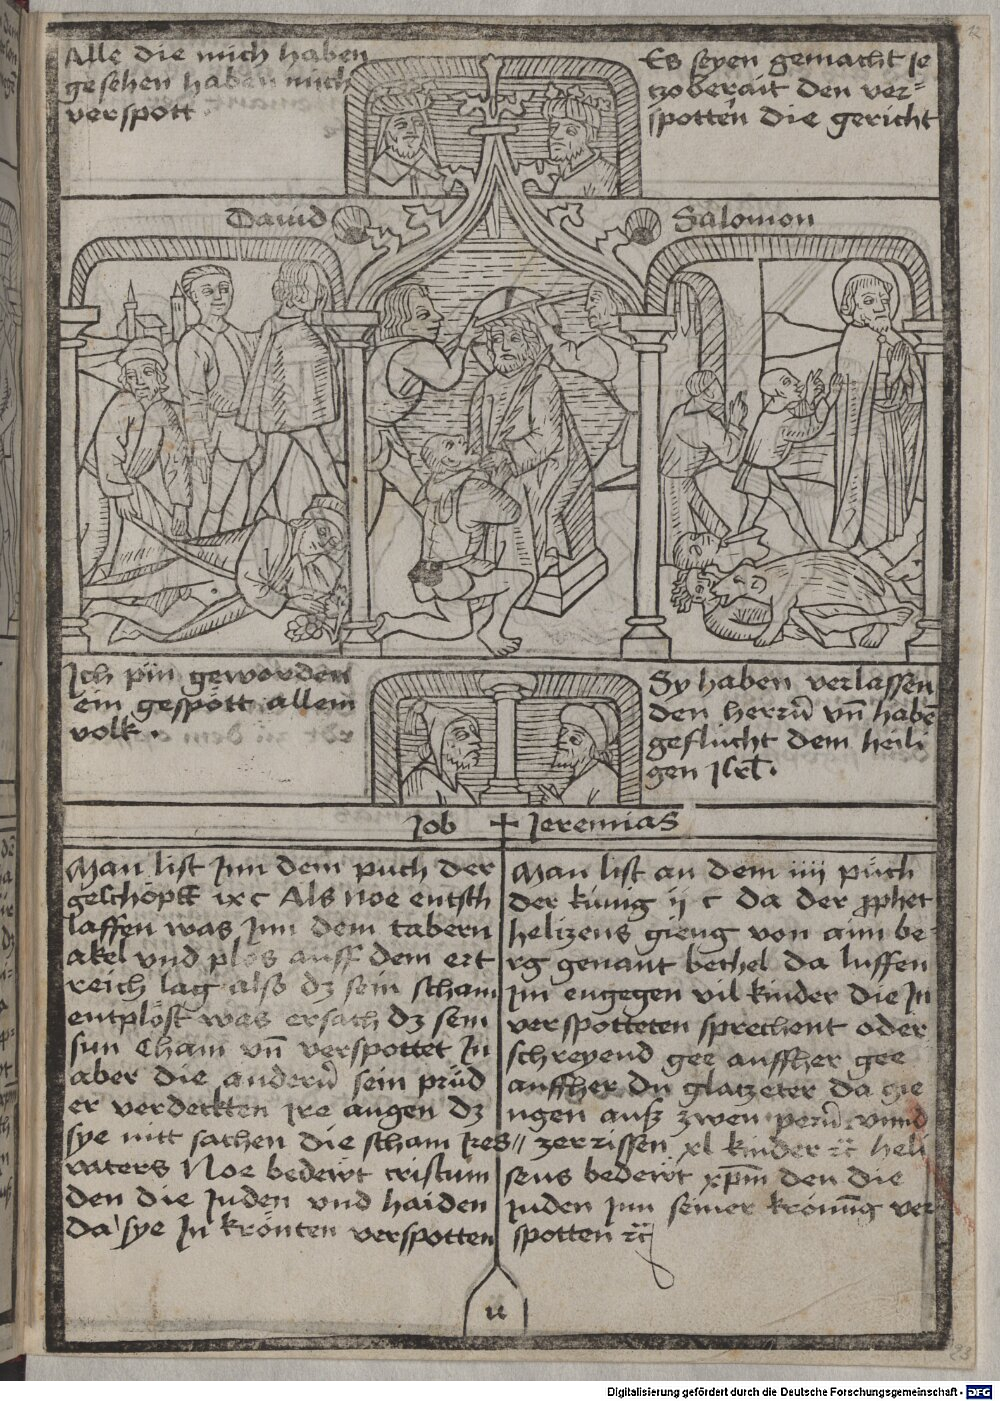 Alle die mich haben
gesehen haben mich
verspott
Es seyen gemacht ie
tzoberait den ver=
spotten die gericht
Dauid
Salomon
Ich pin geworden
ein gespött allem
volk.
Sy haben verlassen
den herrn̄ vn̄ habē
geflucht dem heili
gen Isrl.
Job + Jeremias
Man list Inn dem puch der
geschöpff ix c Als Noe entsch
laffen was Inn dem tabern
akel vnd plos auff dem ert
reich lag also dz sein scham
entplöst was ersach dz sein
sun Cham vn̄ verspottet In
aber die andern̄ sein prüd
er verdeckten ire augen dz
sye nitt sachen die scham Ires
vaters Noe bedewt cristum
den die Juden vnd haiden
da sye In krönten verspotten
Man list an dem iiij püch
der künig ij c da der prophet
helizeus gieng von aim be=
rg genant bethel da luffen
Im engegen vil kinder die In
verspotteten sprechent oder
schreyend gee auffher gee
auffher du glatzeter da gie
ngen auß zwen pern̄ vnnd
// zerrissen xl kinder ꝛc̄ heli
seus bedewt xp̄m den die
juden Inn seiner krönūg ver
spotten ꝛc̄
u
23
Digitalisierung gefördert durch die Deutsche Forschungsgemeinschaft - DFG